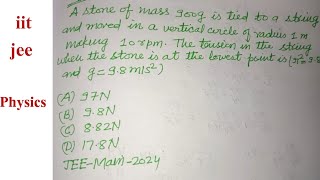 iit
jee
Physics
A stone of mass 900g is tied to a string
and moved in a vertical circle of radius 1 m
making 10 rpm. The tension in the string
when the stone is at the lowest point is (π²=9.8
and g=9.8 m/s²)
(A) 97N
(B) 9.8N
(C) 8.82N
(D) 17.8N
JEE-Main-2024